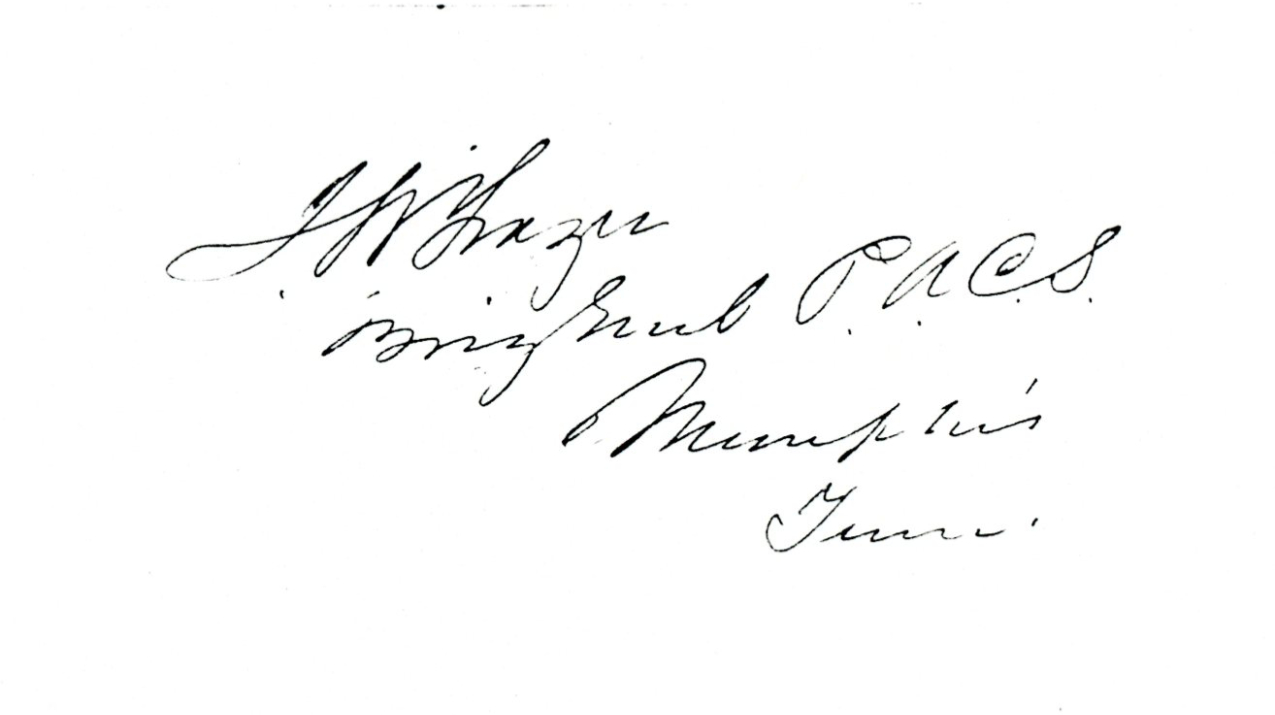 J W Frazer
Brig Genl P. A. C. S.
Memphis
Tenn.